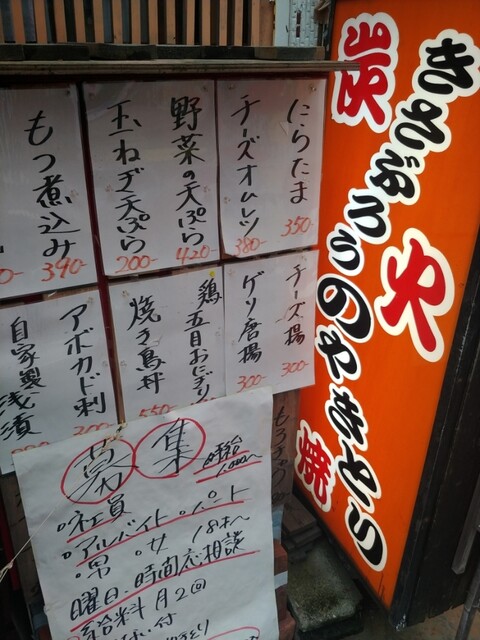 炭火焼
きさぶろうのやきとり
にらたま 350-
チーズオムレツ 380-
野菜の天ぷら 420-
玉ねぎ天ぷら 200-
もつ煮込み 390-
チーズ揚 300-
ゲソ唐揚 300-
鶏五目おにぎり
焼き鳥丼 550
アボカド刺
自家製浅漬
募集
時給
1,000~
◦社員
◦アルバイト ◦パート
◦男 ◦女 18才~
曜日・時間応相談
給料月2回